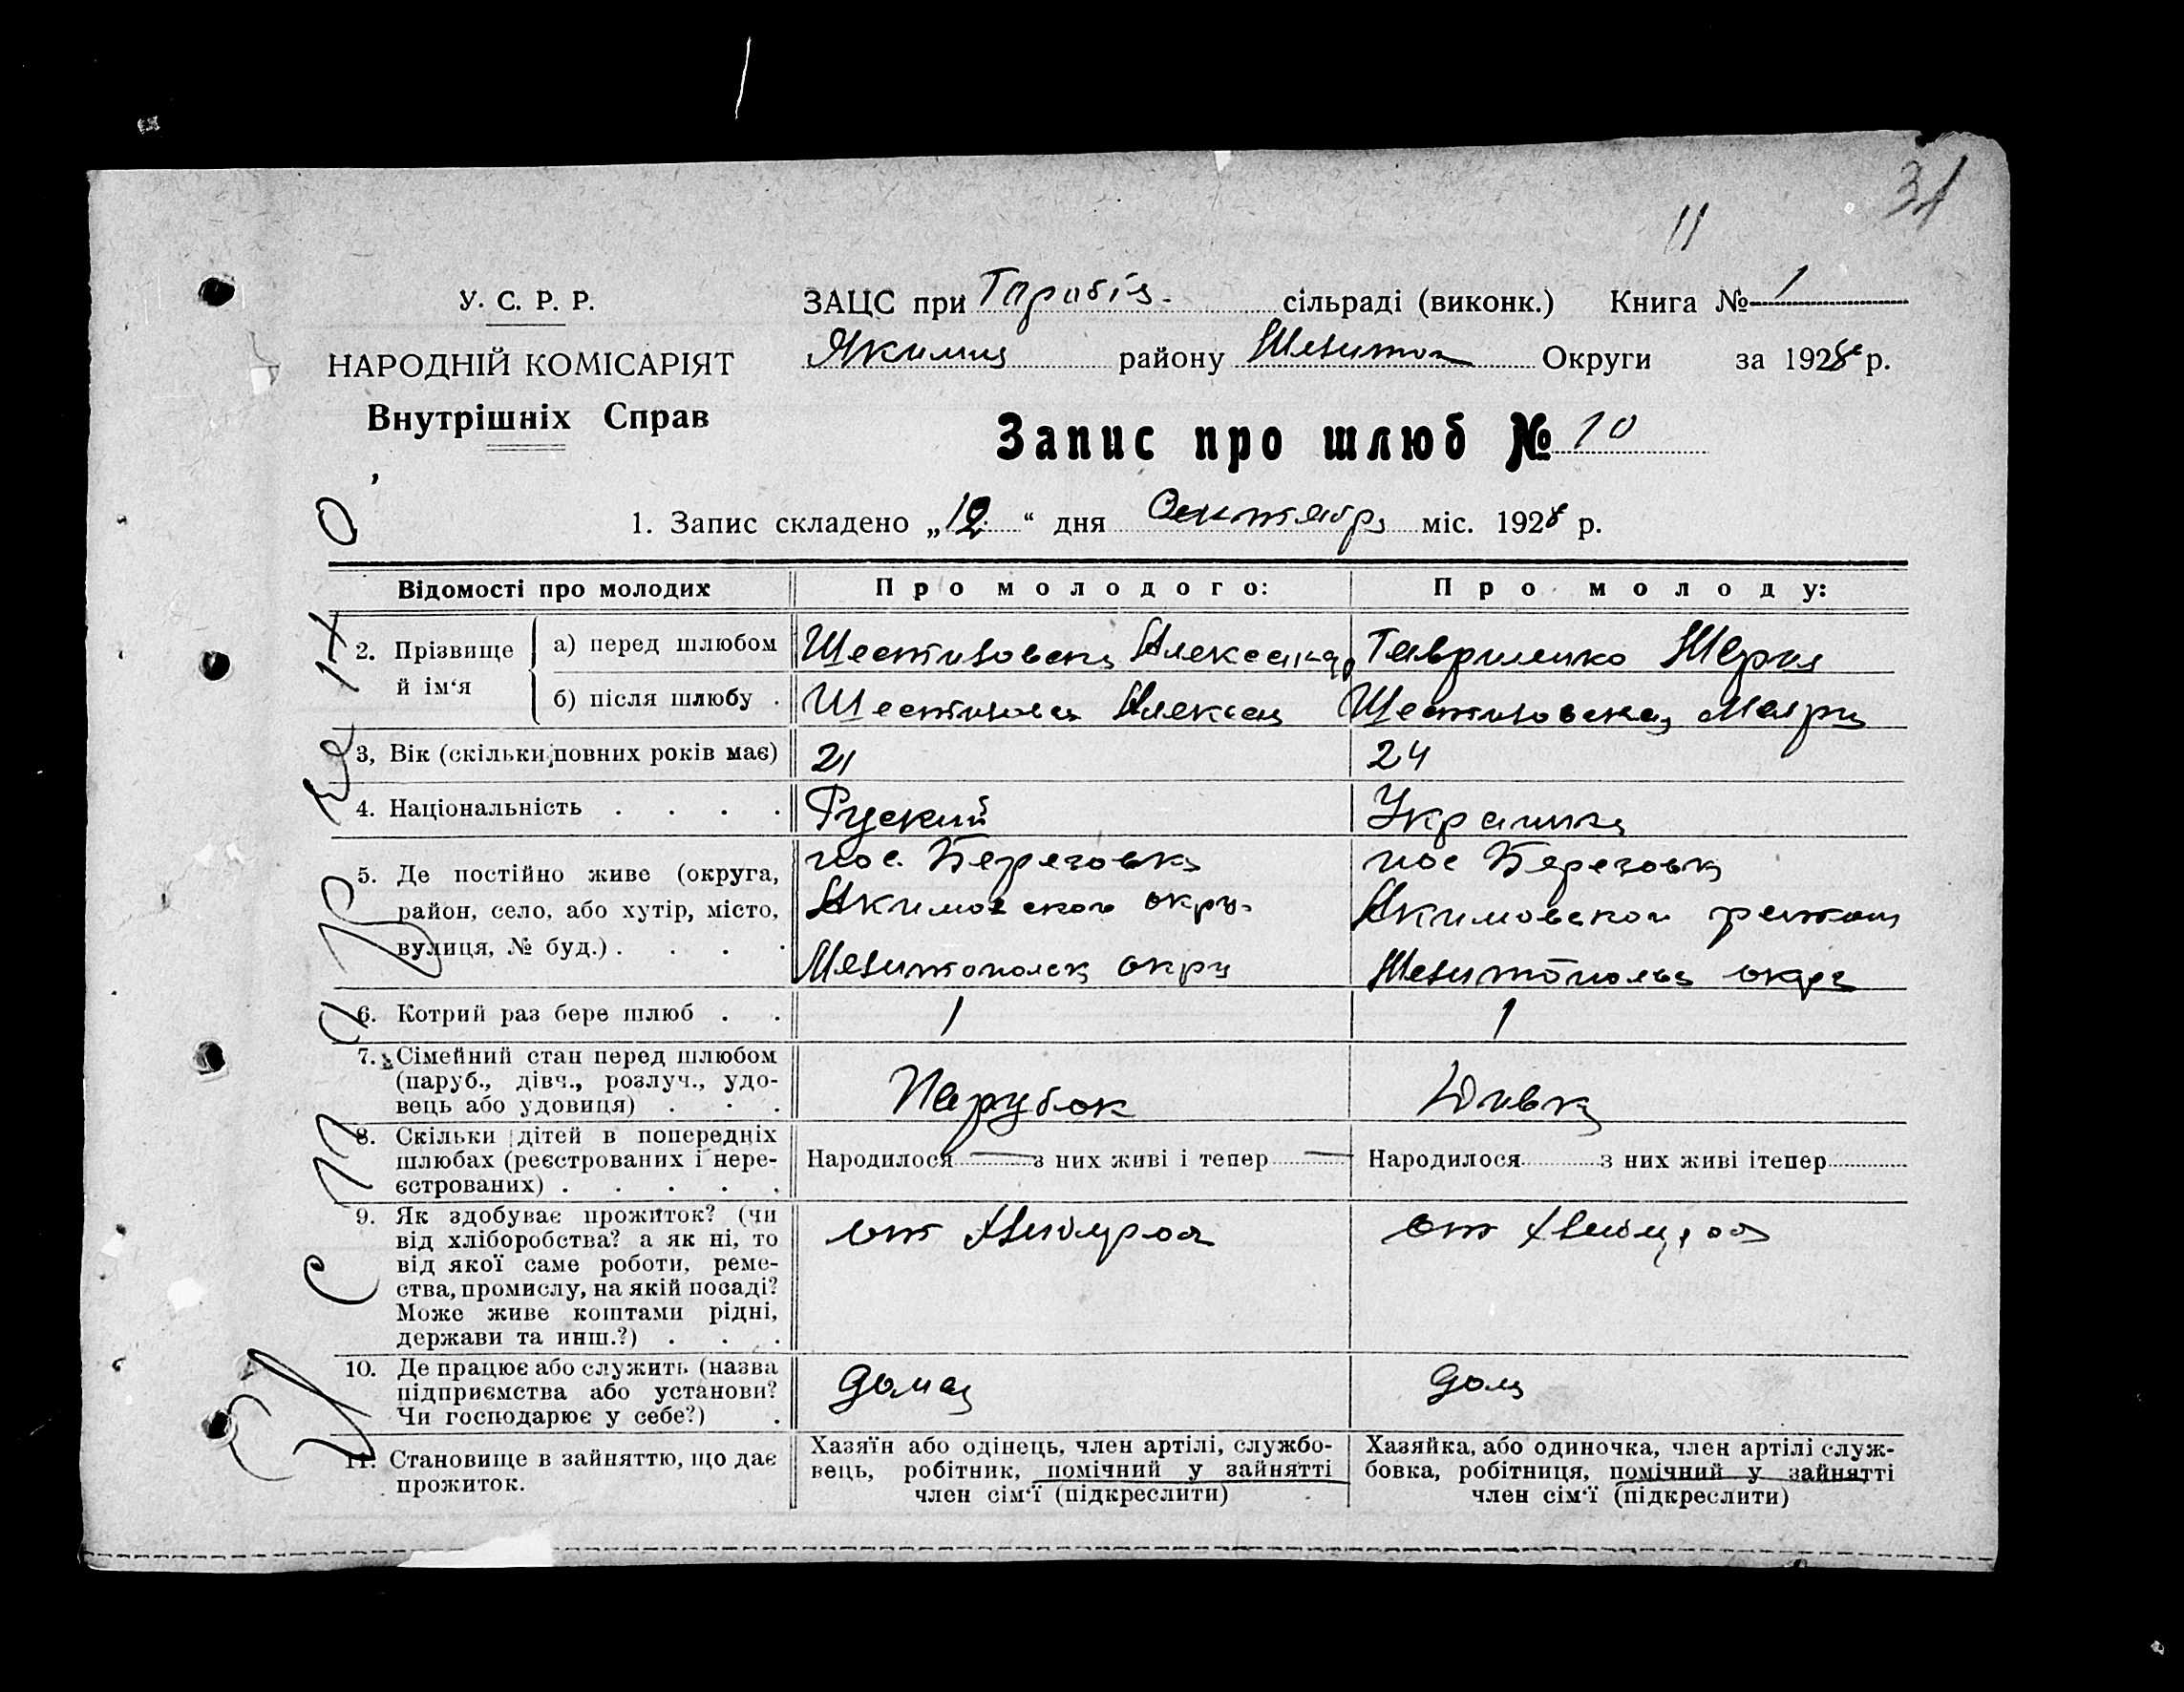 31
11
У. С. Р. Р.
НАРОДНІЙ КОМІСАРІЯТ
Внутрішніх Справ
ЗАЦС при сільраді (виконк.) Книга № 1
Якимів району Мелитоп Округи за 1928 р.
Запис про шлюб № 10
1. Запис складено „12“ дня міс. 1928 р.
Відомості про молодих
Про молодого:
Про молоду:
2. Прізвище й ім‘я
а) перед шлюбом
Гавриленко Мария
б) після шлюбу .
3, Вік (скільки повних років має)
21
24
4. Національність . . . .
Руский
Украинка
5. Де постійно живе (округа,
район, село, або хутір, місто,
вулиця, № буд.) . . . .
пос. Березовка
Акимовского окру.
Мелитопольск окру
пос Березовка
Акимовского
Мелитополь окру
6. Котрий раз бере шлюб . .
1
1
7. Сімейний стан перед шлюбом
(паруб., дівч., розлуч., удо-
вець або удовиця) . . .
Парубок
Дивка
8. Скільки дітей в попередніх
шлюбах (реєстрованих і нере-
єстрованих) . . . . .
Народилося — з них живі і тепер —
Народилося з них живі ітепер
9. Як здобуває прожиток? (чи
від хліборобства? а як ні, то
від якої саме роботи, реме-
ства, промислу, на якій посаді?
Може живе коштами рідні,
держави та инш.?) . . .
от
от
10. Де працює або служить (назва
підприємства або установи?
Чи господарює у себе?) .
дома
дома
11. Становище в зайняттю, що дає
прожиток.
Хазяїн або одінець, член артілі, службо-
вець, робітник, помічний у зайнятті
член сім‘ї (підкреслити)
Хазяйка, або одиночка, член артілі служ-
бовка, робітниця, помічний у зайнятті
член сім‘ї (підкреслити)